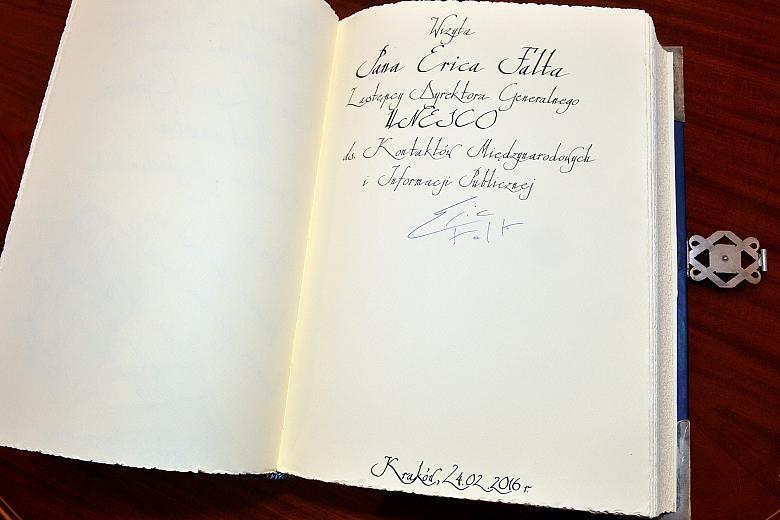 Wizyta
Pana Erica Falta
Zastępcy Dyrektora Generalnego
UNESCO
ds. Kontaktów Międzynarodowych
i Informacji Publicznej
Eric
Falt
Kraków, 24.02.2016 r.